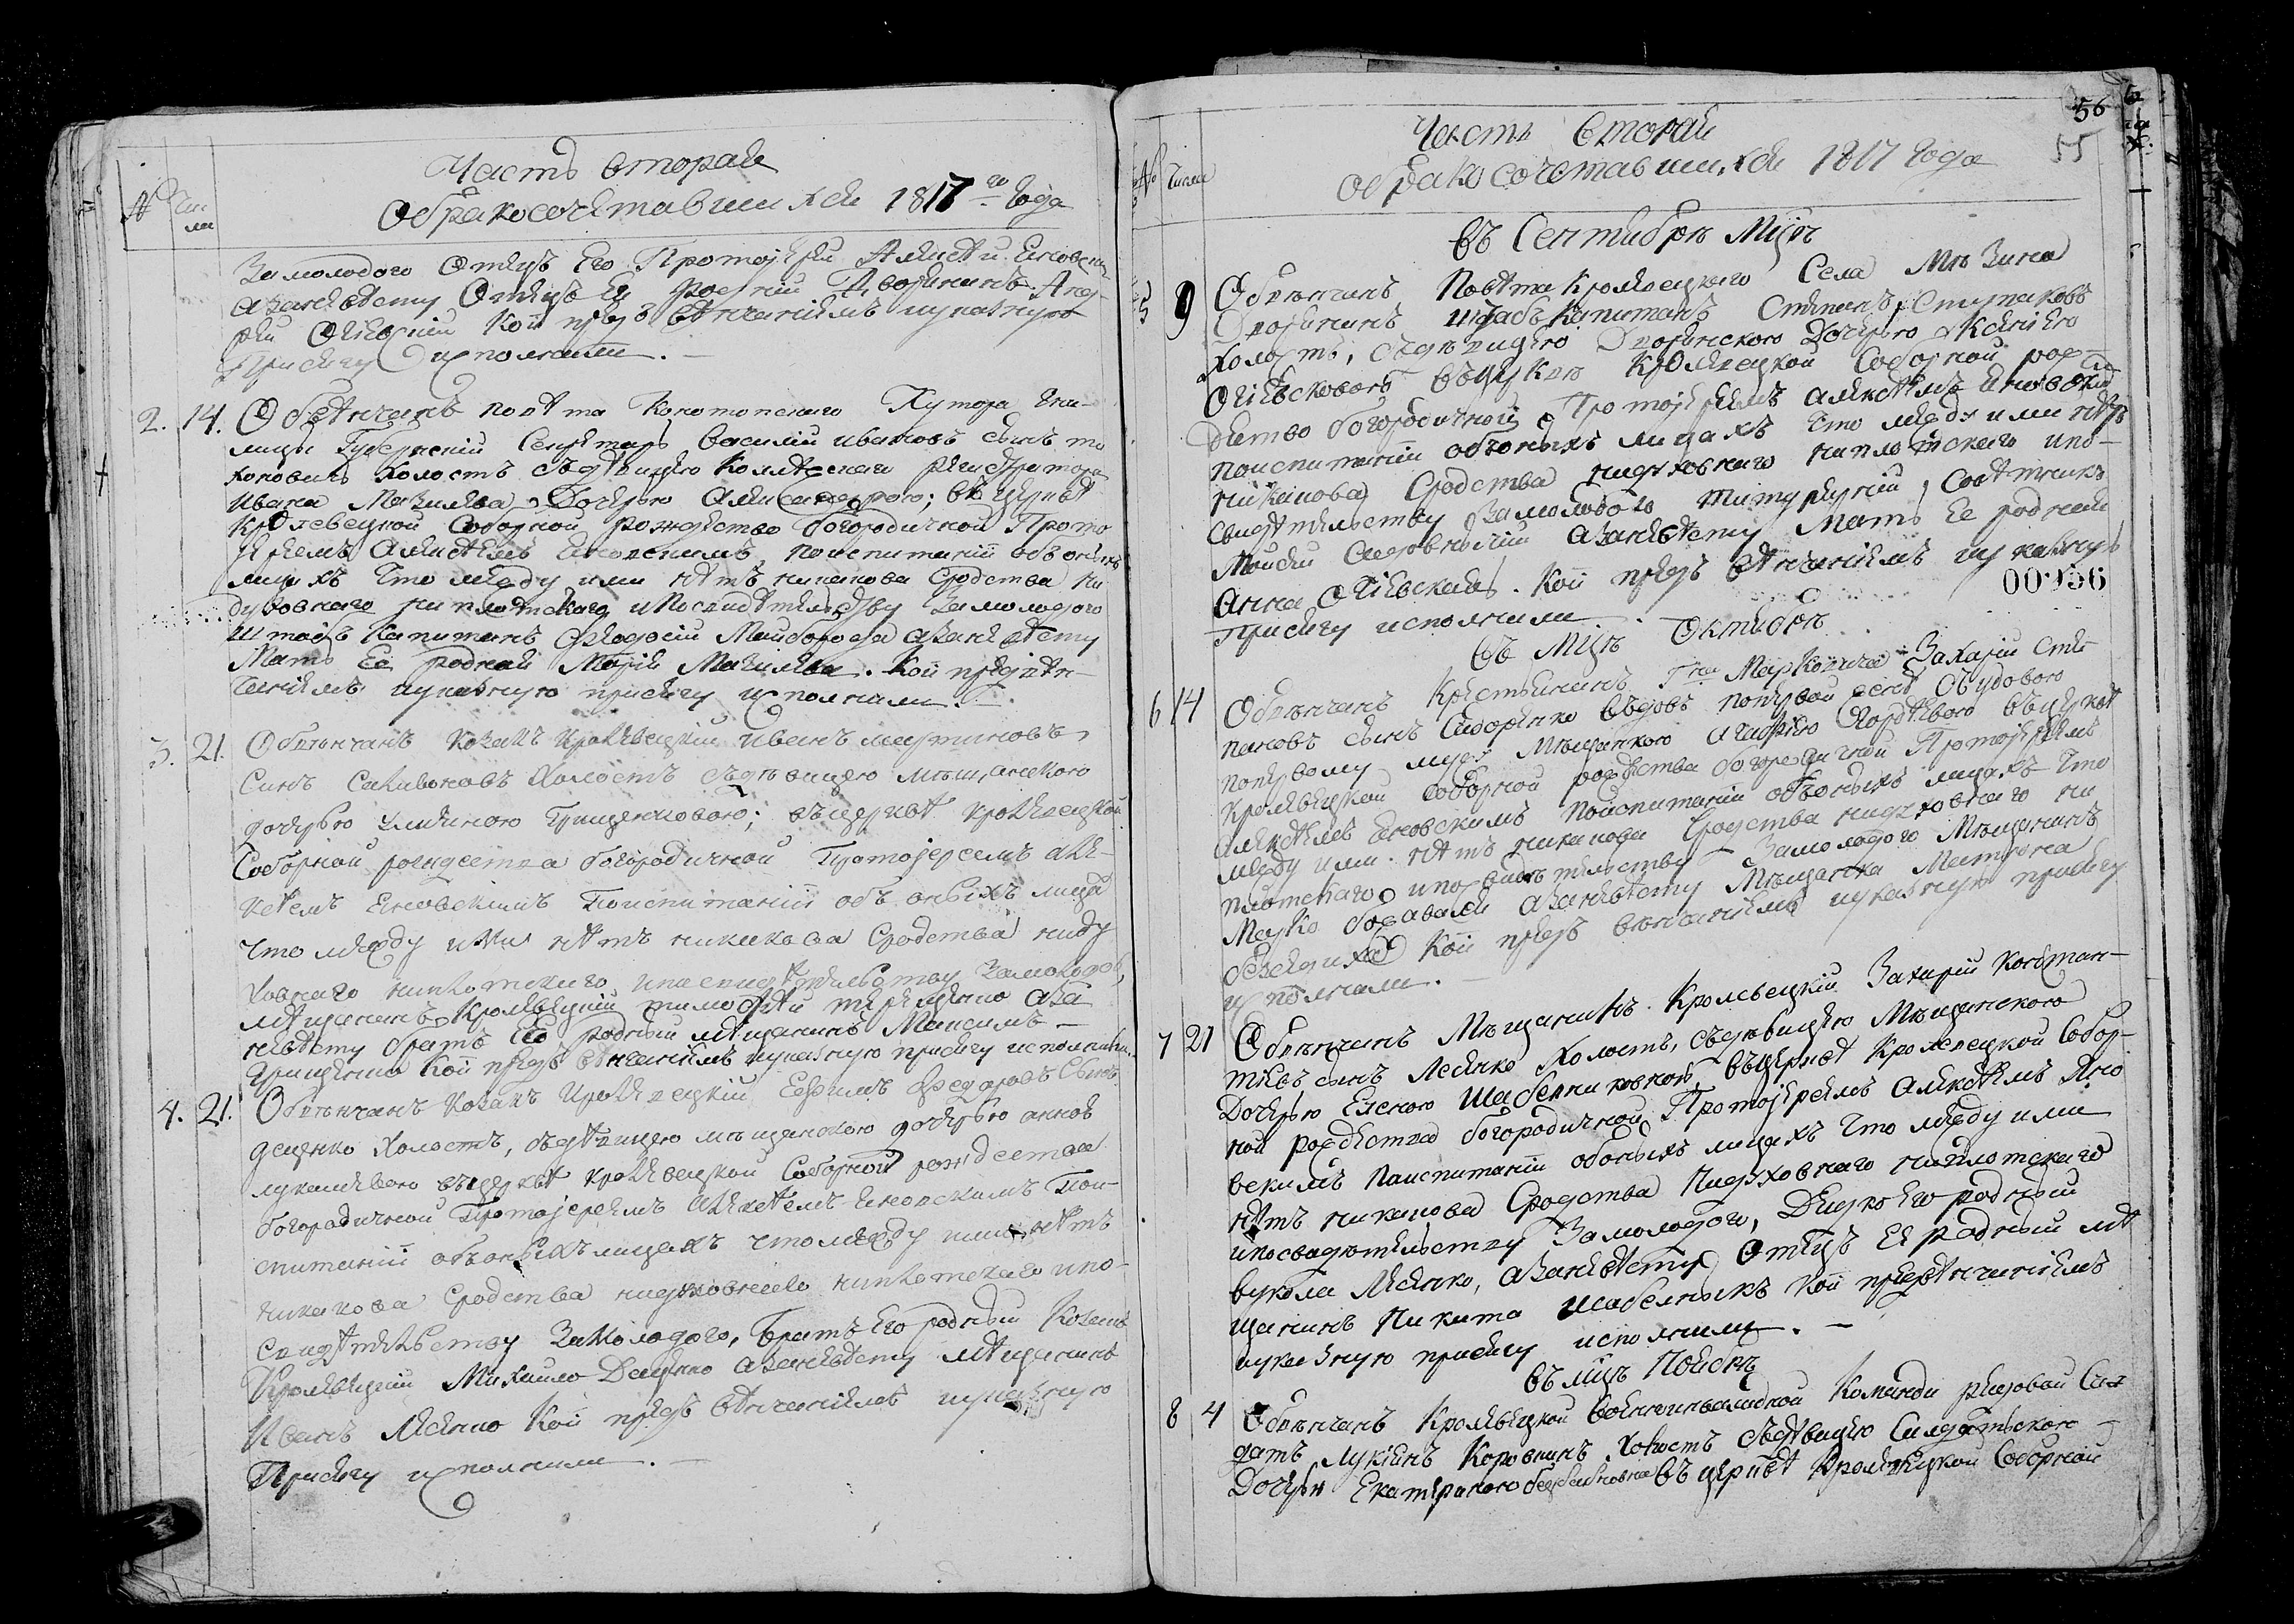 Часть вторая
о бракосочетавшихся 1817го года
№ Чис
ла
За молодого Отецъ Его Протоіерей Алексѣй Еновскій
а за невѣсту Отецъ Ея родний Дворянинъ Анд-
рей Огіевскій кои предъ вѣнчаніемъ указную
Присягу исполнили. —
2. 14. Обвѣнчанъ повѣта Конотопскаго Хутора
лици Губернскій Секретарь Василій Ивановъ сынъ
холостъ съ дѣвицею Коллежскаго регистратора
Ивана дочерью Александрою; въ церквѣ
Кролевецкой Соборной рождество богородичной Прото
іереемъ Алексѣемъ Еновскимъ по испитаніи объ оныхъ
лицахъ что между ими нѣтъ никакова Сродства ни
духовнаго ни плотскаго и по свидѣтельству За молодого
Штабсъ Капитанъ Ѳеодосій Майборода а за невѣсту
Мать Ея родная Марія кои предъ вѣн-
чаніемъ указную присягу исполнили. —
3. 21. Обвѣнчанъ козакъ кролевецкій Иванъ Мартиновъ
Синъ Саливоновъ Холостъ съ дѣвицею мѣщанскою
дочерью Улияною Грищенковою; въ церквѣ кролевецкой
Соборной рождества богородичной Протоіереемъ але-
ксѣемъ Еновскимъ По испитаніи объ оныхъ лица
что между ими нѣтъ никакова Сродства ни ду
ховнаго ни плотскаго и по свидѣтельству За молодого
мѣщанинъ Кролевецкій Тимофѣй Терещенко а за
невѣсту братъ Ея родный мѣщанинъ Максимъ —
Грищенко кои предъ вѣнчаніемъ указную присягу исполнили.
4. 21. Обвѣнчанъ козакъ Кролевецкій Ефимъ Федоровъ Сынъ
Деценко Холостъ, съ дѣвицею мѣщанскою дочерью анною
въ церквѣ кролевецкой Соборной рождества
богородичной Протоіереемъ Алексѣемъ Еновскимъ По и-
спитаніи объ оныхъ лицахъ что между ими нѣтъ
никакова Сродства ни духовнаго ни плотскаго и по-
свидѣтельству За молодого, братъ Его родный Козакъ
Кролевецкій Михайло Деценко а за невѣсту мѣщанинъ
Иванъ Лесенко кои предъ вѣнчаніемъ указную
Присягу исполнили. —
56
55
Часть вторая
о бракосочетавшихся 1817 года
№ Числа
въ Сентябрѣ Мцѣ
5 9 Обвѣнчанъ Повѣта Кролевецкаго Села Мѣзина
Дворянинъ штабъ Капитанъ Степанъ
Холостъ, съ дѣвицею Дворянскою Дочерью Ксеніею
Огіевсковою въ церквѣ Кролевецкой Соборной рож-
дество богородичной Протоіереемъ алексѣемъ Еновским
по испитаніи объ оныхъ лицахъ что между ими нѣтъ
никакова Сродства ни духовнаго ни плотскаго и по-
свидѣтельству За молодого титулярній Совѣтникъ
а за невѣсту Мать Ее родная
Анна Огіевская. Кои предъ вѣнчаніемъ указную
Присягу исполнили
00956
въ Мцѣ Октябрѣ
6 14 Обвѣнчанъ Крестьянинъ Гна Марковича Захарій Сте-
пановъ сынъ Сидоренко вдовъ по первой женѣ Съ вдовою
по первому мужу Мѣщанкою въ церквѣ
Кролевецкой Соборной рождества богородичной Протоіереемъ
Алексѣемъ Еновскимъ по испитаніи объ оныхъ лицахъ что
между ими нѣтъ никакова Сродства ни духовнаго ни
плотскаго и по свидѣтельству За молодого Мѣщанинъ
Марко а за невѣсту Мѣщанка Матрона
кои предъ вѣнчаніемъ указную присягу
исполнили. —
7 21 Обвѣнчанъ Мѣщанинъ Кролевецкій Захарій Констан-
тіевъ сынъ Лесенко Холостъ, съ дѣвицею Мѣщанскою
Дочерью Еленою въ церквѣ Кролевецкой Собор-
ной рождества богородичной Протоіереемъ Алексѣемъ Ено
вскимъ По испитаніи объ оныхъ лицахъ что между ими
нѣтъ никакова Сродства Ни духовнаго ни плотскаго
и по свидѣтельству За молодого, Дядко Его родный
Вукола Лесенко, а за невѣсту Отецъ Ея родный мѣ
щанинъ Никита кои предъ вѣнчаніемъ
указную присягу исполнили. —
въ мцѣ Ноябрѣ
8 4 Обвѣнчанъ Кролевецкой инвалидной Команди рядовой Сол
датъ Лукіянъ Коровкинъ Холостъ съ дѣвицею Салдатскою —
Дочерью Екатериною въ церквѣ Кролевецкой Соборной